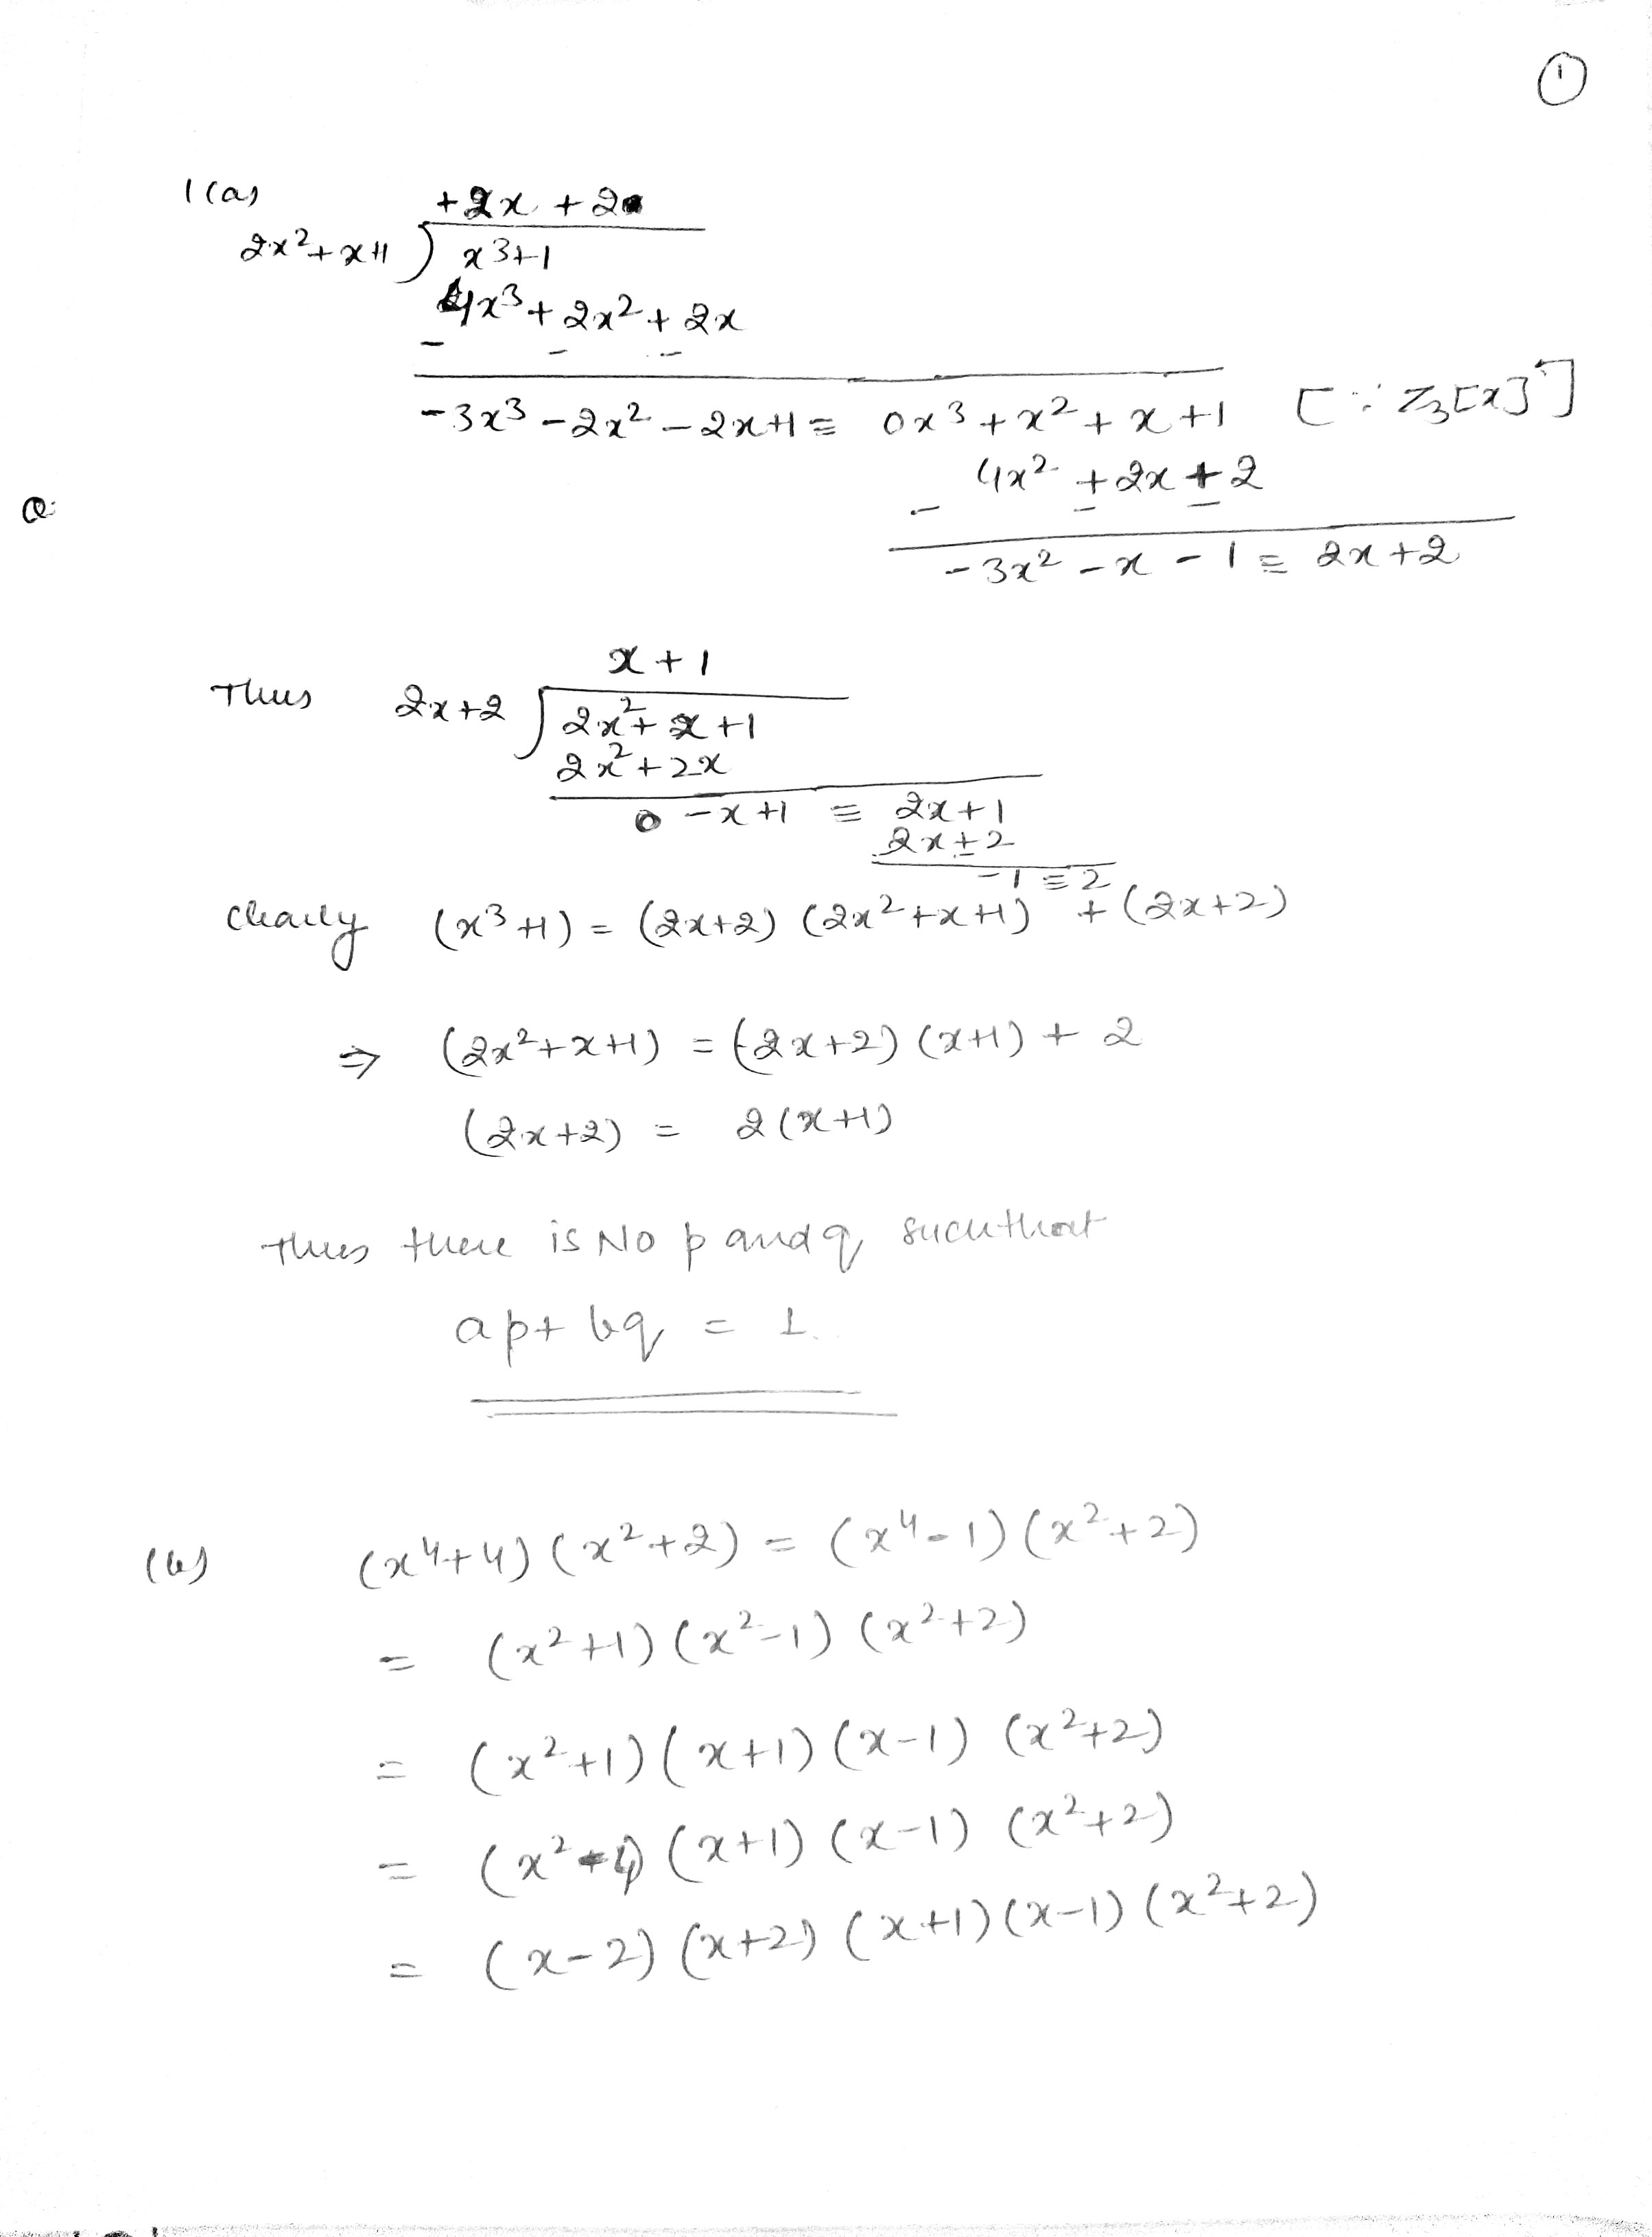 ①
1(a)
+2x + 2
2x²+x+1 ) x³+1
4x³+2x²+2x
- - -
-3x³-2x²-2x+1 ≡ 0x³+x²+x+1 [∵ Z₃[x]]
4x²+2x+2
- - -
-3x²-x-1 ≡ 2x+2
x+1
Thus 2x+2 ) 2x²+x+1
2x²+2x
0-x+1 ≡ 2x+1
2x+2
-1≡2
Clearly (x³+1) = (2x+2)(2x²+x+1) + (2x+2)
⇒ (2x²+x+1) = (2x+2)(x+1) + 2
(2x+2) = 2(x+1)
Thus there is NO p and q such that
ap+bq = 1.
(b) (x⁴+4)(x²+2) = (x⁴-1)(x²+2)
= (x²+1)(x²-1)(x²+2)
= (x²+1)(x+1)(x-1)(x²+2)
= (x²-4)(x+1)(x-1)(x²+2)
= (x-2)(x+2)(x+1)(x-1)(x²+2)